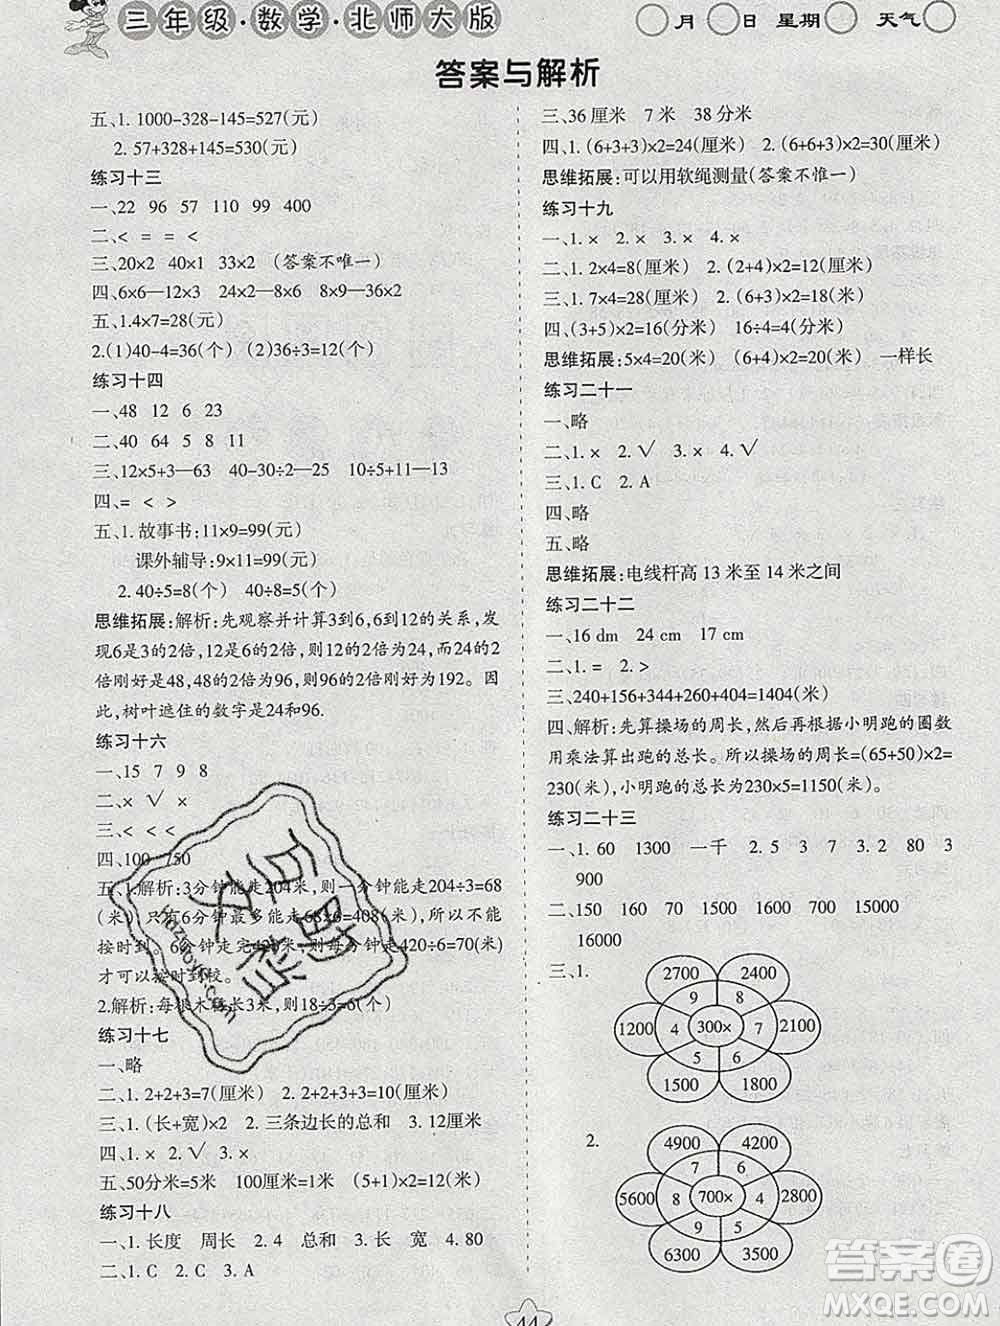 三年级·数学·北师大版
月 日 星期 天气
答案与解析
五、1. 1000-328-145=527(元)
2. 57+328+145=530(元)
练习十三
一、22 96 57 110 99 400
二、< = = <
三、20×2 40×1 33×2 (答案不唯一)
四、6×6—12×3 24×2—8×6 8×9—36×2
五、1.4×7=28(元)
2.(1)40-4=36(个) (2)36÷3=12(个)
练习十四
一、48 12 6 23
二、40 54 5 8 11
三、12×5+3—63 40÷5×2—16 10÷5+11—13
四、= < >
五、1. 故事书:11×9=99(元)
课外辅导:9×11=99(元)
2. 40÷5=8(个) 40÷8=5(个)
思维拓展:解析:先观察并计算3到6,6到12的关系,发
现6是3的2倍,12是6的2倍,则12的2倍为24,而24的2
倍刚好是48,48的2倍为96,则96的2倍刚好为192。因
此,树叶遮住的数字是24和96.
练习十六
一、15 7 9 8
二、× √ ×
三、< < <
四、100 750
五、1.解析:3分钟能走204米,则一分钟能走204÷3=68
(米),只有6分钟最多能走68×6=408(米),所以不能
按时到。6分钟走完420米,则每分钟走420÷6=70(米)
才可以按时到校。
2.解析:每根木桩长3米,则18÷3=6(个)
练习十七
一、略
二、1. 2+2+3=7(厘米) 2. 2+2+3+3=10(厘米)
三、1.(长+宽)×2 2. 三条边长的总和 3. 12厘米
四、1. × 2. √ 3. × 4. ×
五、50分米=5米 100厘米=1米 (5+1)×2=12(米)
练习十八
一、1. 长度 周长 2. 4 总和 3. 长 宽 4. 80
二、1. C 2. C 3. A
三、36厘米 7米 38分米
四、1. (6+3+3)×2=24(厘米) 2. (6+6+3)×2=30(厘米)
思维拓展:可以用软绳测量(答案不惟一)
练习十九
一、1. × 2. × 3. × 4. ×
二、1. 2×4=8(厘米) 2. (2+4)×2=12(厘米)
三、1. 7×4=28(厘米) 2. (6+3)×2=18(厘米)
四、(3+5)×2=16(分米) 16÷4=4(分米)
思维拓展:5×4=20(分米) (6+4)×2=20(分米) 一样长
练习二十一
一、略
二、1. × 2. √ 3. × 4. √
三、1. C 2. A
四、略
五、略
思维拓展:电线杆高 13 米至 14 米之间
练习二十二
一、16 dm 24 cm 17 cm
二、1. = 2. >
三、240+156+344+260+404=1404(厘米)
四、解析:先算操场的周长,然后再根据小明跑的圈数
用乘法算出跑的总长。所以操场的周长=(65+50)×2=
230(米),小明跑的总长为230×5=1150(米)。
练习二十三
一、1. 60 1300 一千 2. 5 3 7 3. 2 80 3
900
二、150 160 1500 1600 15000
16000
三、1.
2700 2400
9 8
1200 4 300× 7 2100
5 6
1500 1800
2.
4900 4200
7 6
5600 8 700× 4 2800
9 5
6300 3500
44
答案圈
MXQE.COM